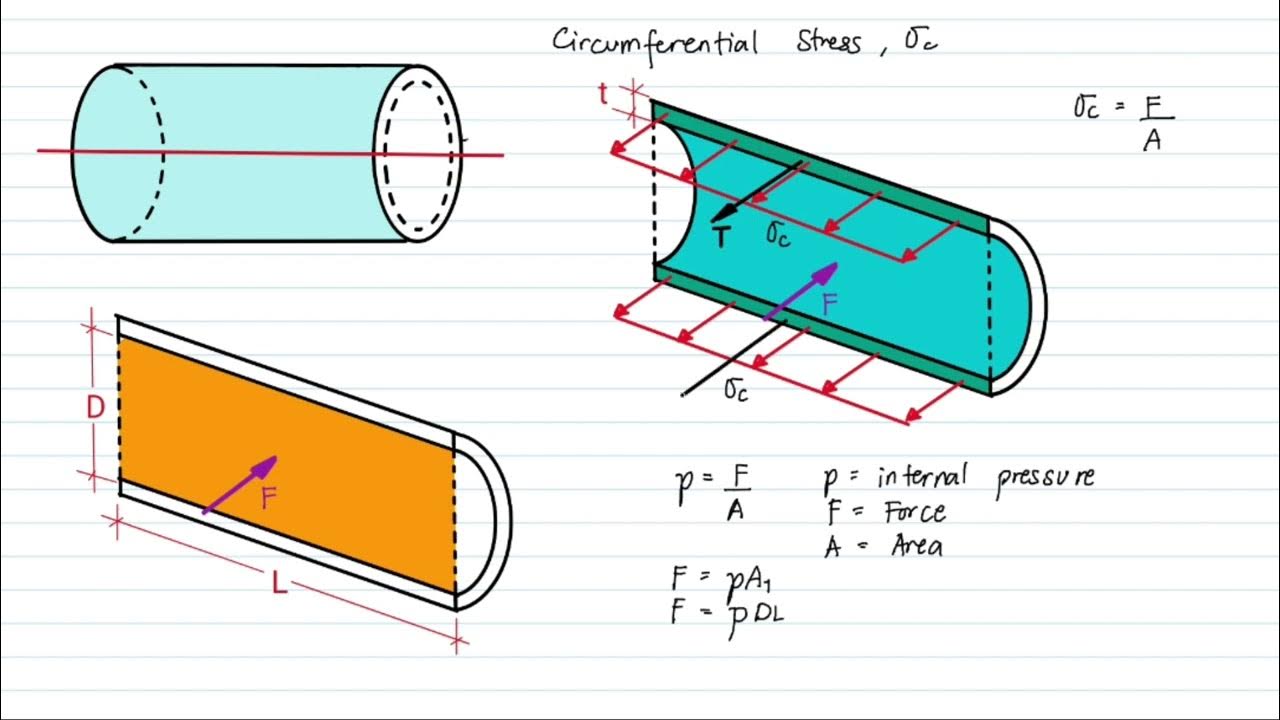 Circumferential Stress, σc
t
σc = F
A
T
σc
F
σc
D
F
L
p = F
A
p = internal pressure
F = Force
A = Area
F = pA1
F = pDL